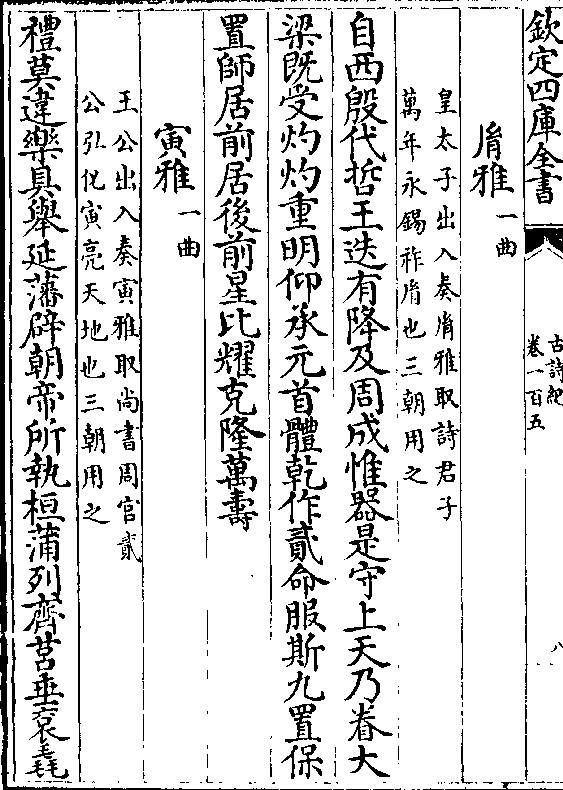 欽定四庫全書
古詩紀
卷一百五
八
胤雅一曲
皇太子出入奏胤雅取詩君子
萬年永錫祚胤也三朝用之
自西殷代哲王迭有降及周成惟器是守上天乃眷大
梁既受灼灼重明仰承元首體乾作貳命服斯九置保
置師居前居後前星比耀克隆萬壽
寅雅一曲
王公出入奏寅雅取尚書周官貳
公弘化寅亮天地也三朝用之
禮莫違樂具舉延藩辟朝帝所執桓蒲列齊莒垂衮毳